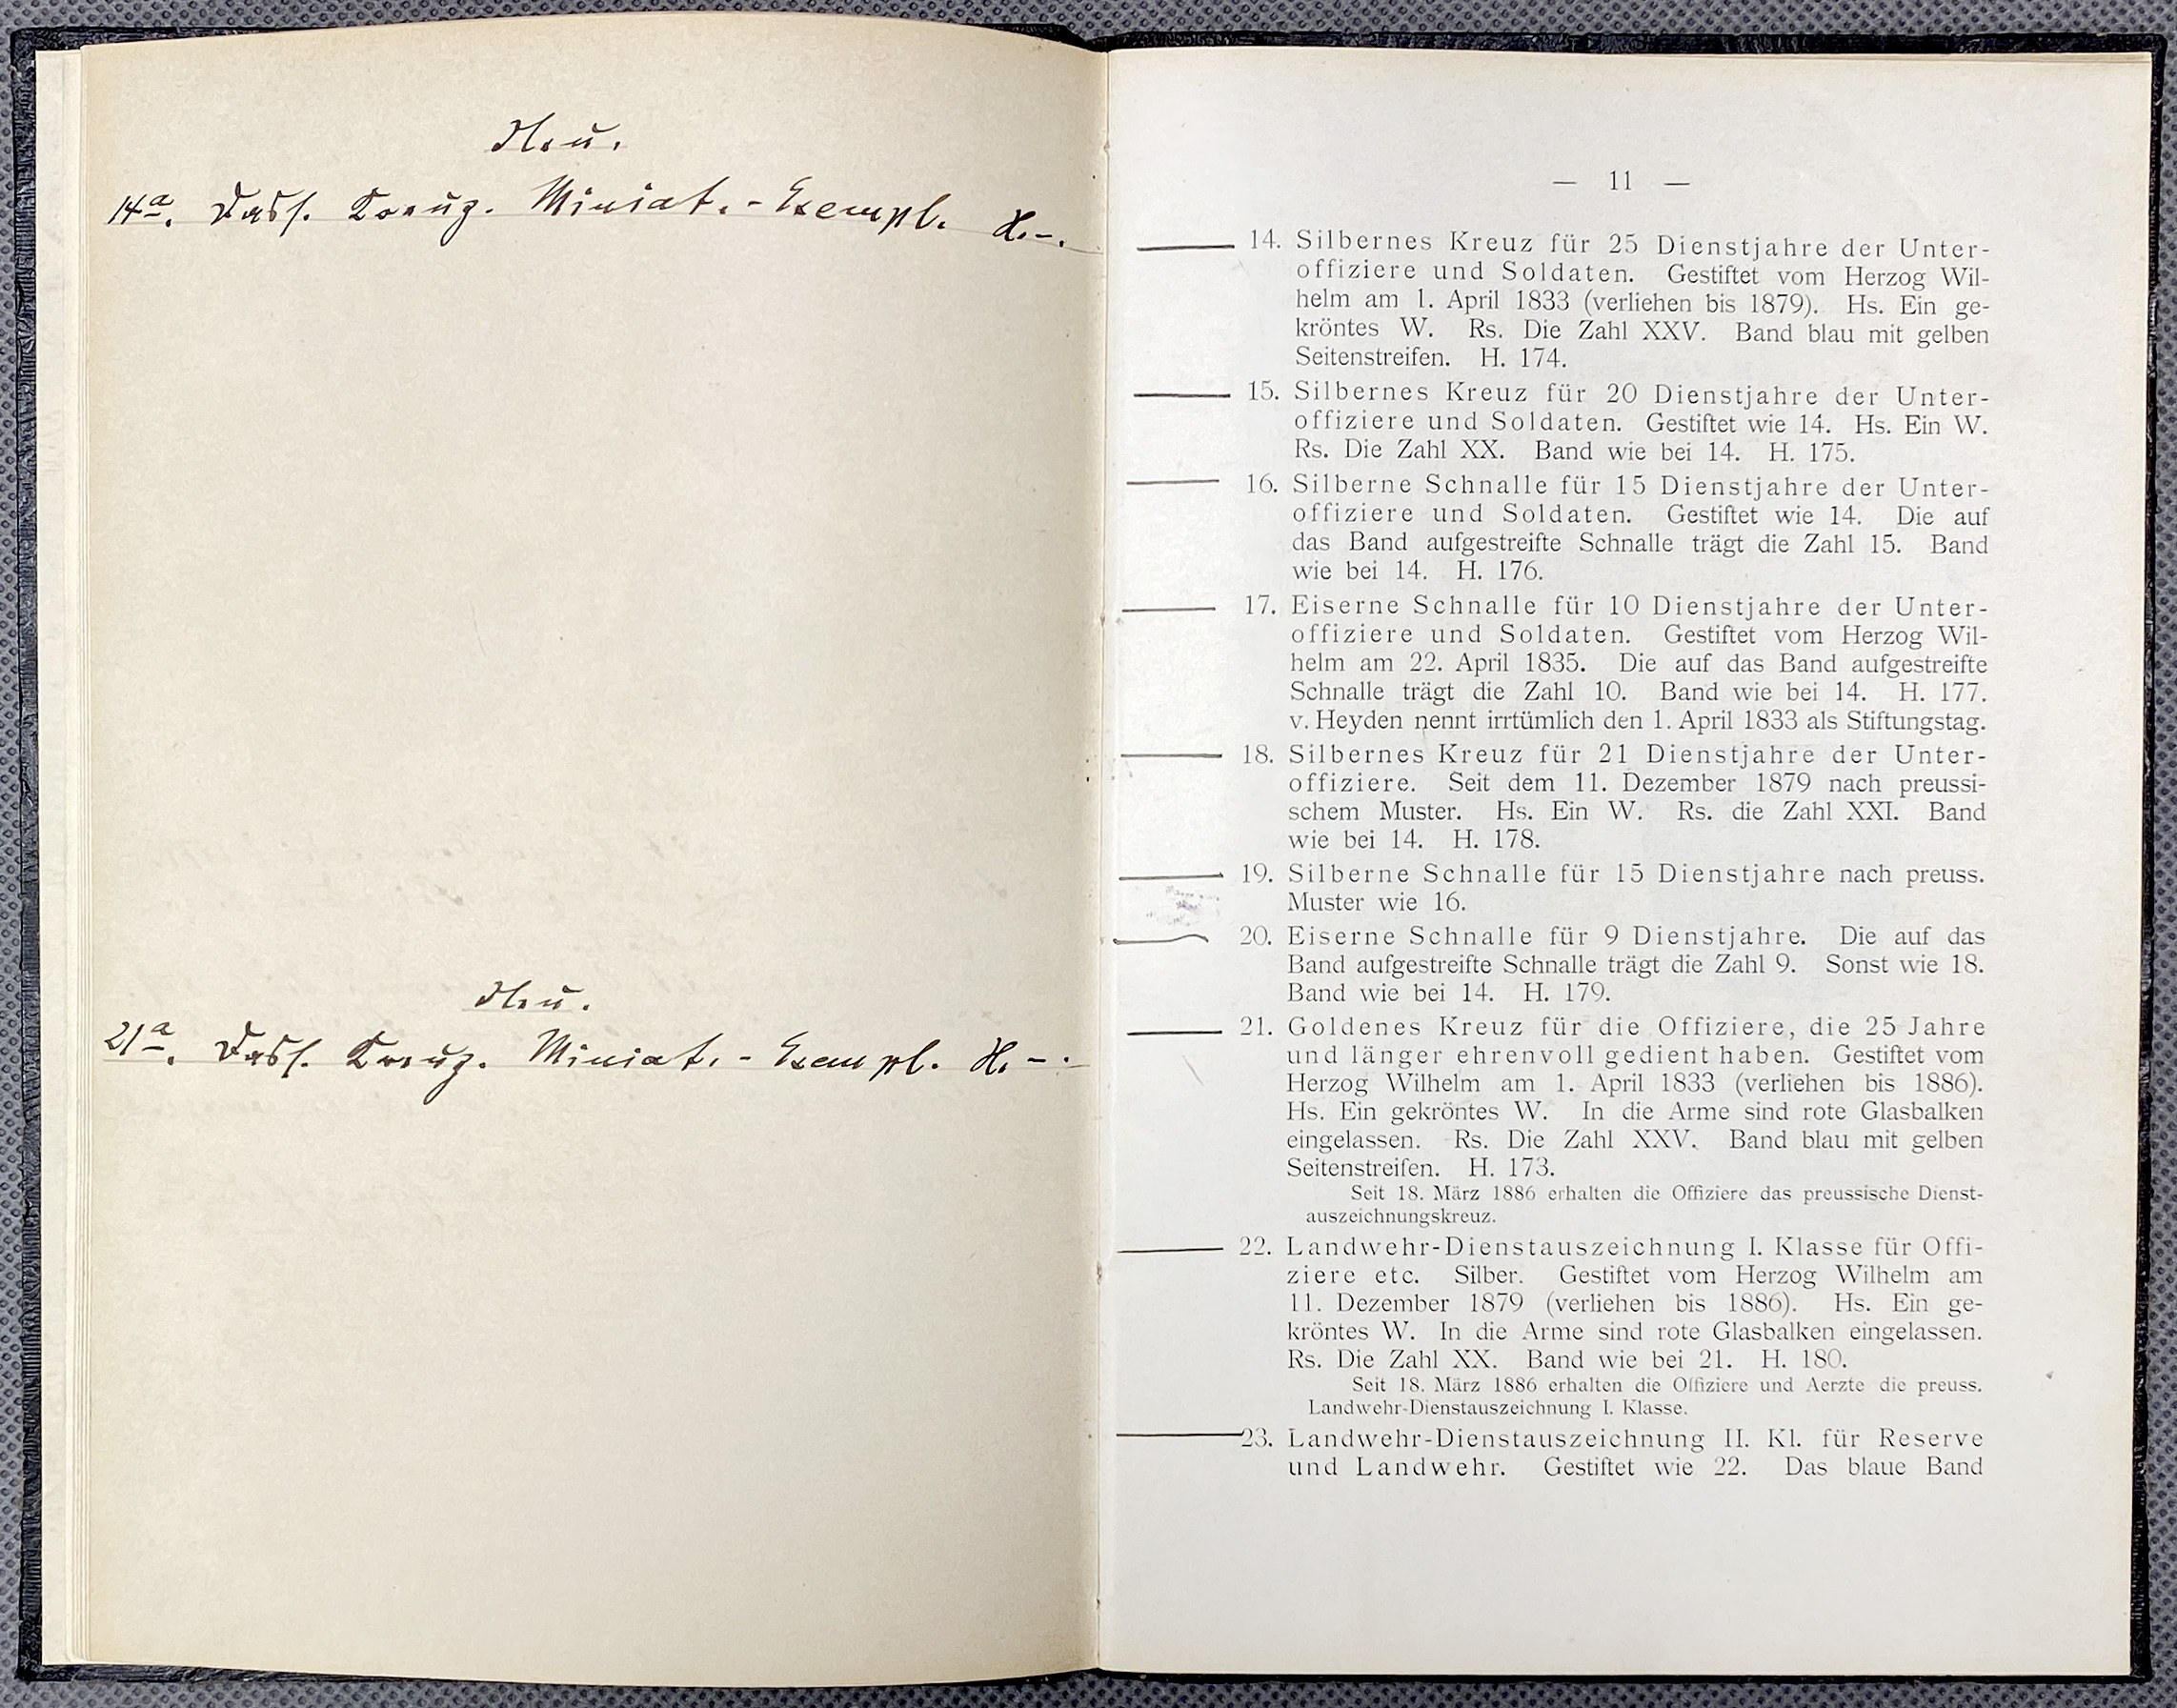 Neu.
14a. Dass. Kreuz. Miniat.-Exempl. H.-.
Neu.
21a. Dass. Kreuz. Miniat.-Exempl. H.-.
— 11 —
14. Silbernes Kreuz für 25 Dienstjahre der Unter-
offiziere und Soldaten. Gestiftet vom Herzog Wil-
helm am 1. April 1833 (verliehen bis 1879). Hs. Ein ge-
kröntes W. Rs. Die Zahl XXV. Band blau mit gelben
Seitenstreifen. H. 174.
15. Silbernes Kreuz für 20 Dienstjahre der Unter-
offiziere und Soldaten. Gestiftet wie 14. Hs. Ein W.
Rs. Die Zahl XX. Band wie bei 14. H. 175.
16. Silberne Schnalle für 15 Dienstjahre der Unter-
offiziere und Soldaten. Gestiftet wie 14. Die auf
das Band aufgestreifte Schnalle trägt die Zahl 15. Band
wie bei 14. H. 176.
17. Eiserne Schnalle für 10 Dienstjahre der Unter-
offiziere und Soldaten. Gestiftet vom Herzog Wil-
helm am 22. April 1835. Die auf das Band aufgestreifte
Schnalle trägt die Zahl 10. Band wie bei 14. H. 177.
v. Heyden nennt irrtümlich den 1. April 1833 als Stiftungstag.
18. Silbernes Kreuz für 21 Dienstjahre der Unter-
offiziere. Seit dem 11. Dezember 1879 nach preussi-
schem Muster. Hs. Ein W. Rs. die Zahl XXI. Band
wie bei 14. H. 178.
19. Silberne Schnalle für 15 Dienstjahre nach preuss.
Muster wie 16.
20. Eiserne Schnalle für 9 Dienstjahre. Die auf das
Band aufgestreifte Schnalle trägt die Zahl 9. Sonst wie 18.
Band wie bei 14. H. 179.
21. Goldenes Kreuz für die Offiziere, die 25 Jahre
und länger ehrenvoll gedient haben. Gestiftet vom
Herzog Wilhelm am 1. April 1833 (verliehen bis 1886).
Hs. Ein gekröntes W. In die Arme sind rote Glasbalken
eingelassen. Rs. Die Zahl XXV. Band blau mit gelben
Seitenstreifen. H. 173.
Seit 18. März 1886 erhalten die Offiziere das preussische Dienst-
auszeichnungskreuz.
22. Landwehr-Dienstauszeichnung I. Klasse für Offi-
ziere etc. Silber. Gestiftet vom Herzog Wilhelm am
11. Dezember 1879 (verliehen bis 1886). Hs. Ein ge-
kröntes W. In die Arme sind rote Glasbalken eingelassen.
Rs. Die Zahl XX. Band wie bei 21. H. 180.
Seit 18. März 1886 erhalten die Offiziere und Aerzte die preuss.
Landwehr-Dienstauszeichnung I. Klasse.
23. Landwehr-Dienstauszeichnung II. Kl. für Reserve
und Landwehr. Gestiftet wie 22. Das blaue Band